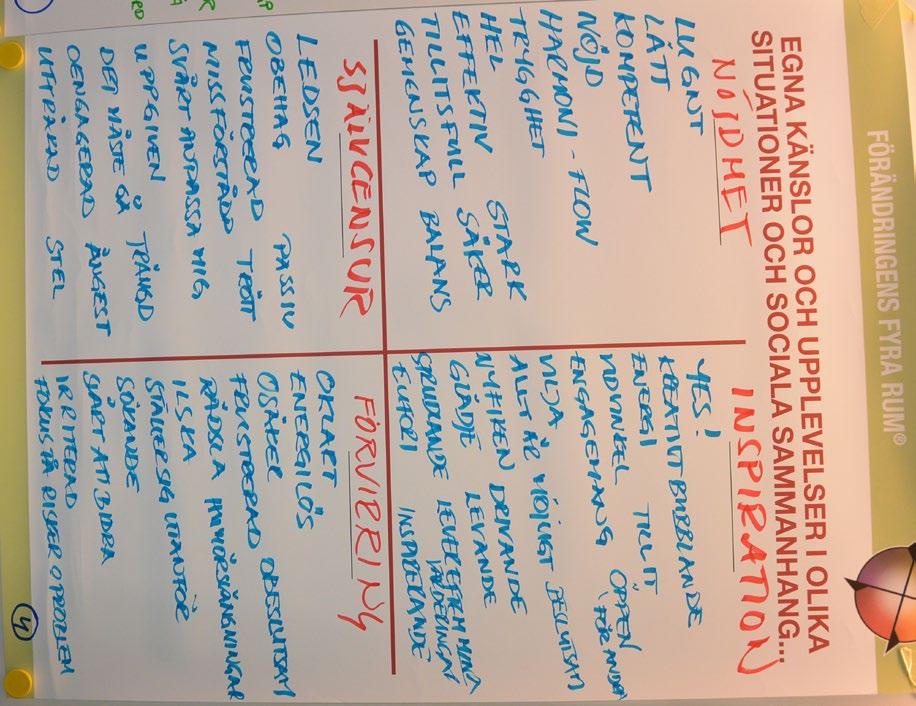 FÖRÄNDRINGENS FYRA RUM®
EGNA KÄNSLOR OCH UPPLEVELSER I OLIKA
SITUATIONER OCH SOCIALA SAMMANHANG...
NÖJDHET
LUGNT
LÄTT
KOMPETENT
NÖJD
HARMONI - FLOW
TRYGGHET
HEL STARK
EFFEKTIV SÄKER
TILLITSFULL
GEMENSKAP BALANS
INSPIRATION
YES!
KREATIVT BUBBLANDE
ENERGI TILLIT
MEDVINKEL ÖPPEN
ENGAGEMANG FÖR ANDRA
VILJA BESLUTSAM
ALLT ÄR MÖJLIGT
NYFIKEN DRIVANDE
GLÄDJE LEVANDE
SPRUDLANDE LEVER EFTER MINA
VÄRDERINGAR
EUFORI INSPIRERANDE
SJÄLVCENSUR
LEDSEN
OBEHAG PASSIV
FRUSTRERAD TRÖTT
MISSFÖRSTÅDD
SVÅRT ANPASSA MIG
UPPGIVEN TRÄNGD
DET MÅSTE GÅ
OENGAGERAD ÅNGEST
UTTRÅKAD STEL
FÖRVIRRING
ORKAR EJ
ENERGILÖS
OSÄKER OBESLUTSAM
FRUSTRERAD
RÄDSLA HUMÖRSVÄNGNINGAR
ILSKA
STÄLLER SIG UTANFÖR
SÖKANDE
SVÅRT ATT BIDRA
IRRITERAD
FOKUS PÅ RISKER O PROBLEM
4